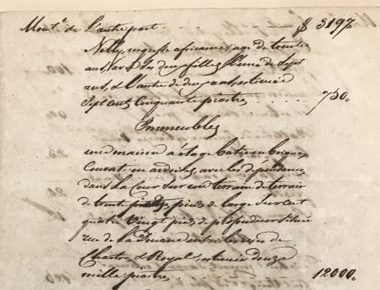 Montt. de l'autre part $ 3197.
Nelly, négresse africaine, age de trente
ans, Vars. Ses deux filles l'une de Sept
ans, et l'autre de deux ans, estimée
Sept Cent Cinquante piastres 750.
Immeubles
une maison à étage bâtie en briques
Couvert en ardoises, avec les dépendances
dans la Cour Sur un terrain
de trente pieds de large Sur Cent
quatre Vingt pieds de profondeur située
rue de la Douane entre les rues de
Chartres & Royal, estimée douze
mille piastres 12000.